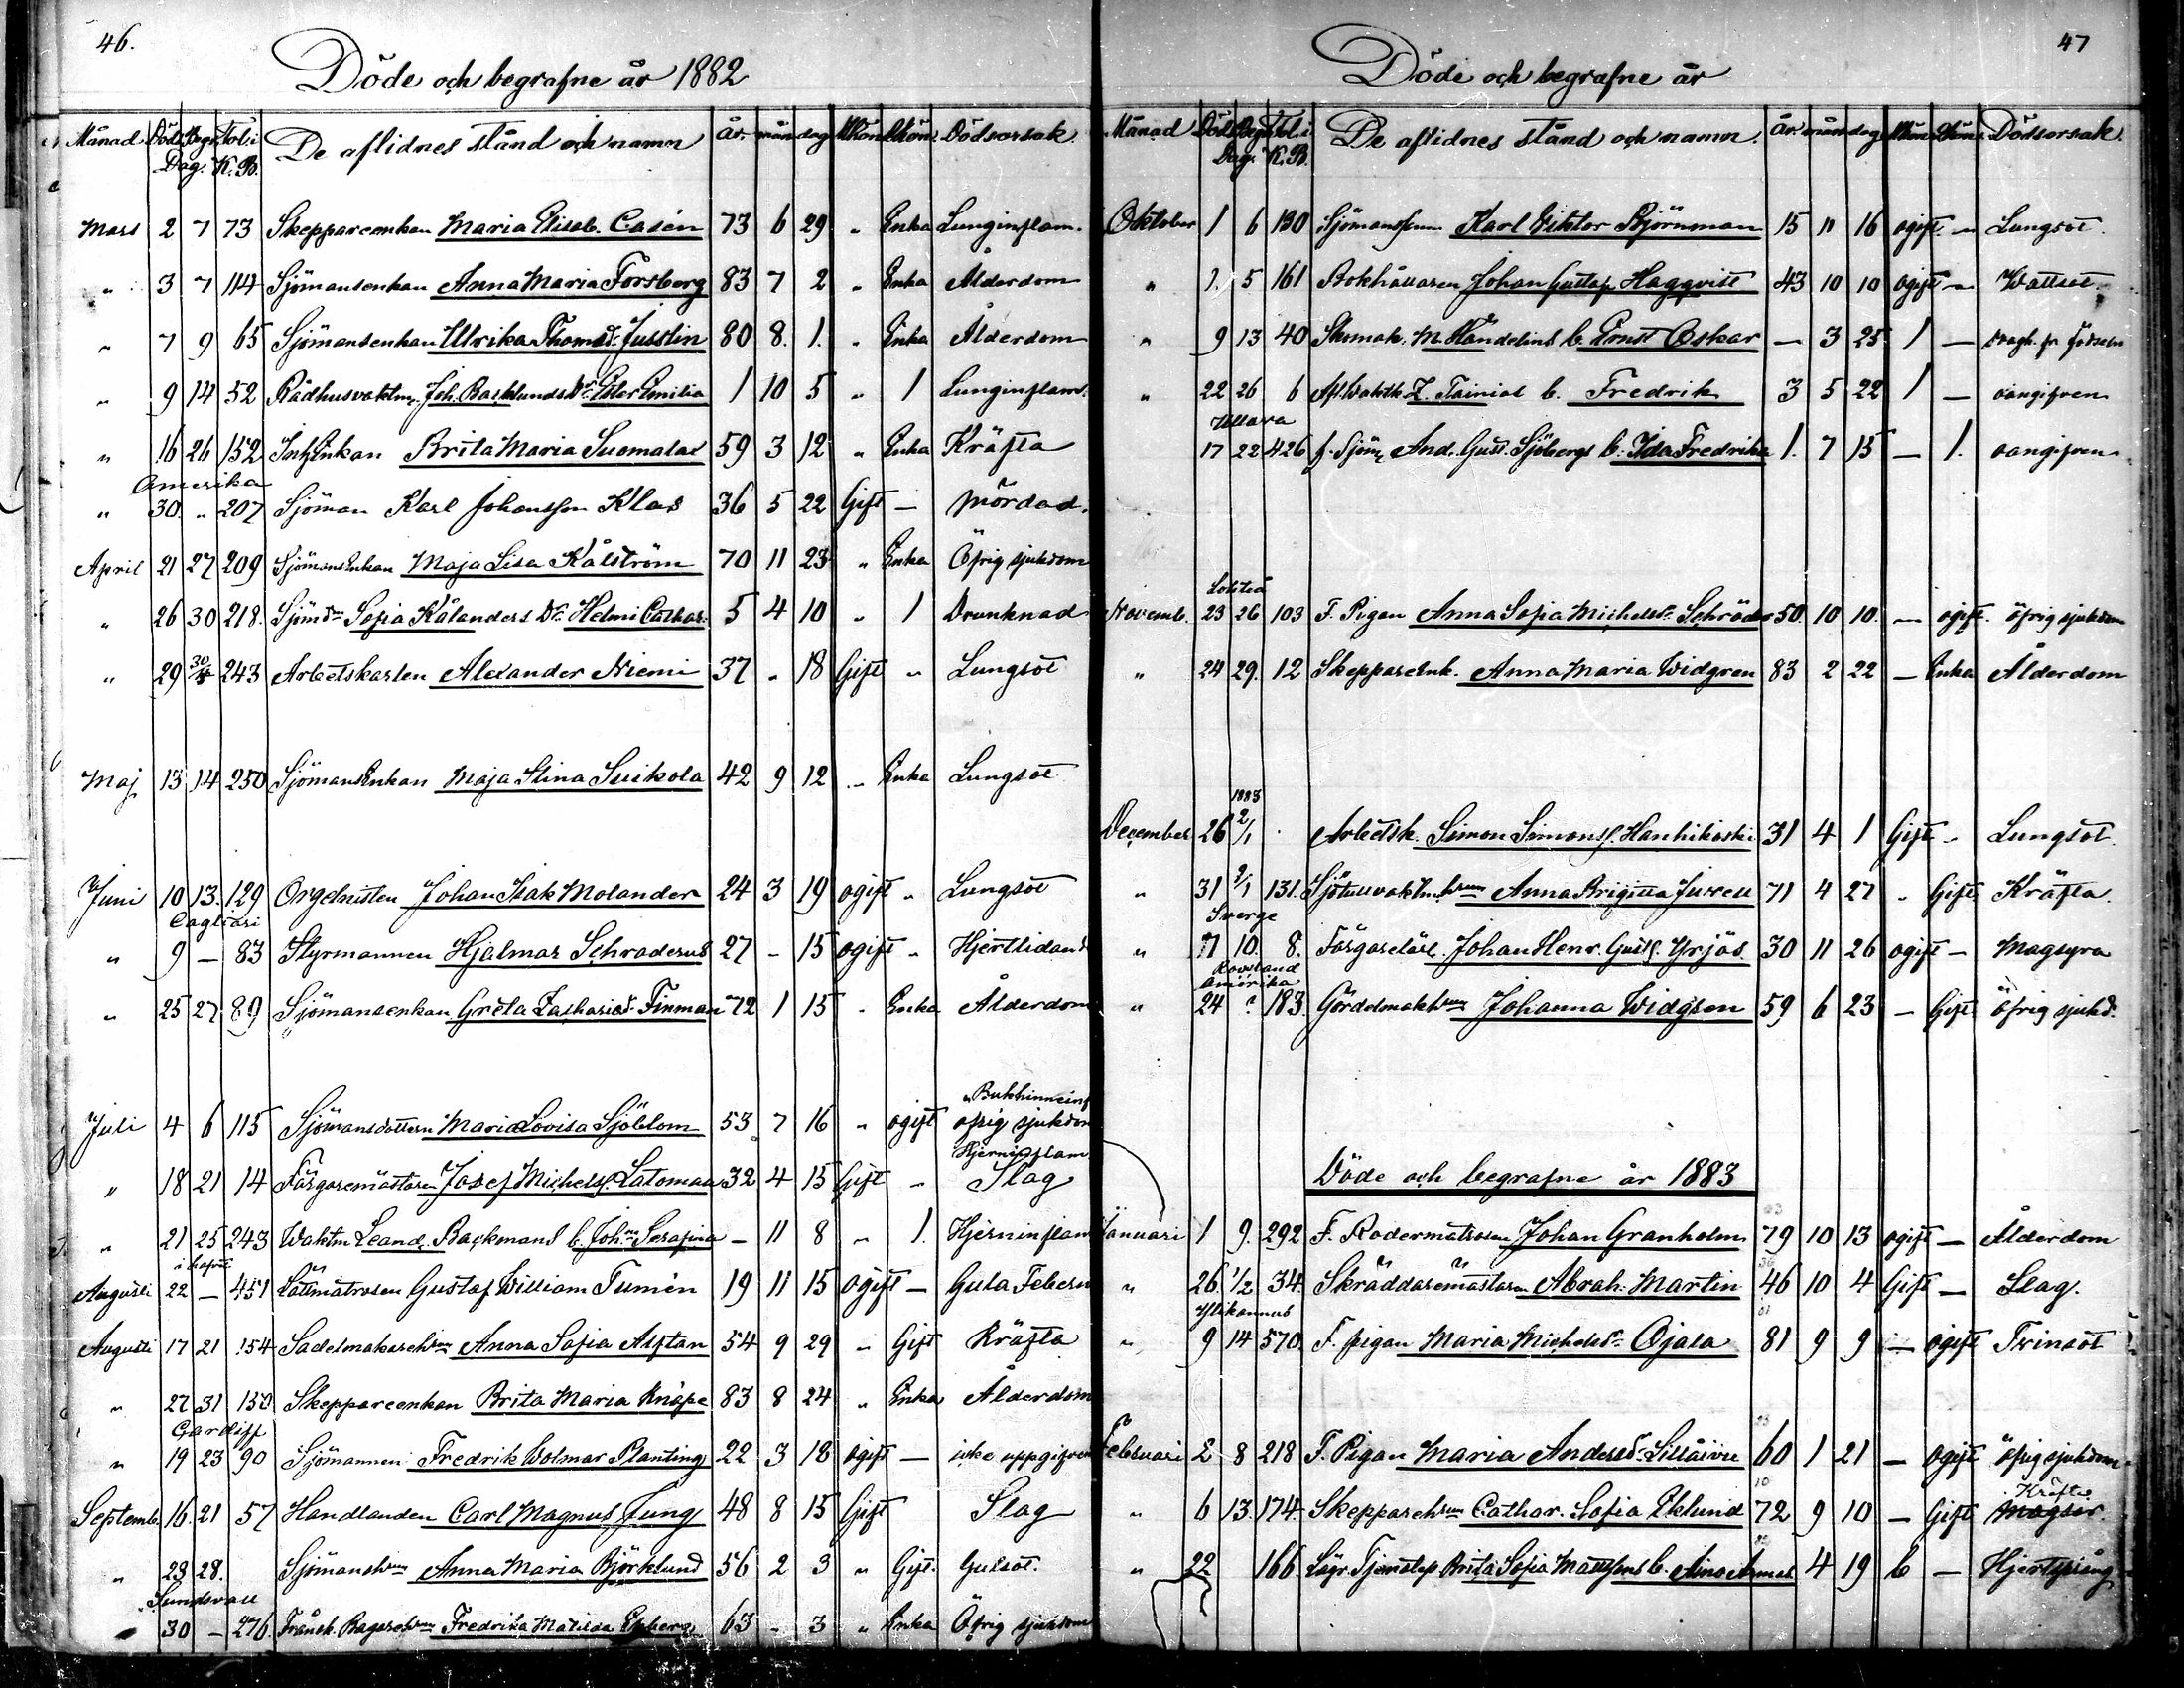 46.
Döde och begrafne år 1882
Månad Död. Begr. Fol. i De aflidnes stånd och namn år. mån dag Mkön Qkön. Dödsorsak.
Dag. K. B.
Mars 2 7 73 Skeppareenkan Maria Elisab. Casén 73 6 29 " Enka Lunginflam.
" 3 7 114 Sjömansenkan Anna Maria Forsberg 83 7 2 " Enka Ålderdom
" 7 9 65 Sjömansenkan Ulrika Thomasd. Jusslin 80 8. 1. " Enka Ålderdom
" 9 14 52 Rådhusvaktm. Joh. Backlunds Dr. Ester Emilia 1 10 5 " 1 Lunginflam.
" 16 26 152 Inh. Enkan Brita Maria Suomalax 59 3 12 " Enka Kräfta
Amerika
" 30. " 207 Sjöman Karl Johansson Klas 36 5 22 Gift — Mördad.
April 21 27 209 Sjömans Enkan Maja Lisa Kålström 70 11 23 " Enka Öfrig sjukdom
" 26 30 218. Sjömd:n Sofia Kålanders Dr. Helmi Cathar. 5 4 10 " 1 Drunknad
" 29 30/4 243 Arbetskarlen Alexander Niemi 37 " 18 Gift " Lungsot
Maj 13 14 250 Sjömans Enkan Maja Stina Suikola 42 9 12 " Enka Lungsot
Juni 10 13. 129 Orgelnisten Johan Isak Molander 24 3 19 ogift " Lungsot
Cagliari
" 9 — 83 Styrmannen Hjalmar Schroderus 27 - 15 ogift " Hjertlidand
" 25 27 89 Sjömansenkan Greta Zachariasd. Finman 72 1 15 " Enka Ålderdom
Bukhinneinf
Juli 4 6 115 Sjömansdottern Maria Lovisa Sjöblom 53 7 16 " ogift öfrig sjukdom
Hjerninflam
" 18 21 14 Färgaremästaren Josef Michelss. Latomaa 32 4 15 Gift " Slag
" 21 25 243 Waktm Leand. Backmans b. Joh:na Serafina — 11 8 " 1. Hjerninflam
i hafvet
Augusti 22 — 451 Lättmatrosen Gustaf William Tumén 19 11 15 ogift — Gula Febern
Augusti 17 21 154 Sadelmakarehrun Anna Sofia Alftan 54 9 29 " Gift Kräfta
" 27 31 150 Skeppareenkan Brita Maria Knape 83 8 24 " Enka Ålderdom
Cardiff
" 19 23 90 Sjömannen Fredrik Wolmar Planting 22 3 18 ogift — icke uppgifven
Septemb. 16. 21 57 Handlanden Carl Magnus Jung 48 8 15 Gift Slag
" 23 28. Sjömanshrun Anna Maria Björklund 56 2 3 " Gift. Gulsot.
Sundsvall
30 — 276. Fredrika Matilda 63 - 3 " Enka Öfrig sjukdom
47
Döde och begrafne år
Månad Död. Begr. Fol. i De aflidnes stånd och namn. år. mån dag Mkön Qkön. Dödsorsak.
Dag. K. B.
Oktober 1 6 130 Sjömanssonen Karl Viktor Björnman 15 11 16 ogift. — Lungsot.
" 1. 5 161 Bokhållaren Johan Gustaf Hagqvist 43 10 10 ogift — Wattsot
" 9 13 40 Skomak. M. Handelins b. Ernst Oskar — 3 25 1 — svagh. fr. födseln
" 22 26 6 Afl. Waktk. Z. Tainiol b. Fredrik 3 5 22 1 — oangifven
Ullava
17 22 426 f. Sjöm. And. Gust. Sjöbergs b. Ida Fredrika 1. 7 15 — 1. oangifven
Lohteå
Novemb. 23 26 103 F. Pigan Anna Sofia Michelsd. Schröder 50. 10 10. — ogift. öfrig sjukdom
" 24 29. 12 Skeppareenk. Anna Maria Widgren 83 2 22 — Enka Ålderdom
1883
December 26 2/1 Arbetsk. Simon Simonss. Hanhikoski 31 4 1 Gift " Lungsot.
" 31 2/1 131. Sjötullvaktm.hrun Anna Brigitta Juvell 71 4 27 " Gift Kräfta.
Sverge
" 7 10. 8. Färgarelärl. Johan Henr. Gusts. Yrjäs 30 11 26 ogift — Magsyra
Amerika
" 24 ? 183. Gördelmakhrun Johanna Widgren 59 6 23 — Gift öfrig sjukd.
Döde och begrafne år 1883
Januari 1 9. 292 F. Rodermatrosen Johan Granholm 79 10 13 ogift — Ålderdom
" 26. 1/2 34. Skräddaremästaren Abrah. Martin 46 10 4 Gift — Slag.
Ylikannus
" 9 14 570. F. pigan Maria Michelsd. Ojala 81 9 9 — ogift Trinsot
Februari 2 8 218 F. Pigan Maria Andersd. Sillåivu 60 1 21 — ogift öfrig sjukdom
Kräfta
" 6 13. 174. Skepparehrun Cathar. Sofia Eklund 72 9 10 — Gift Magsår.
" 22 166. Lägr. Tjenstep Brita Sofia Mattssons b. Aina 4 19 6 — Hjertspång